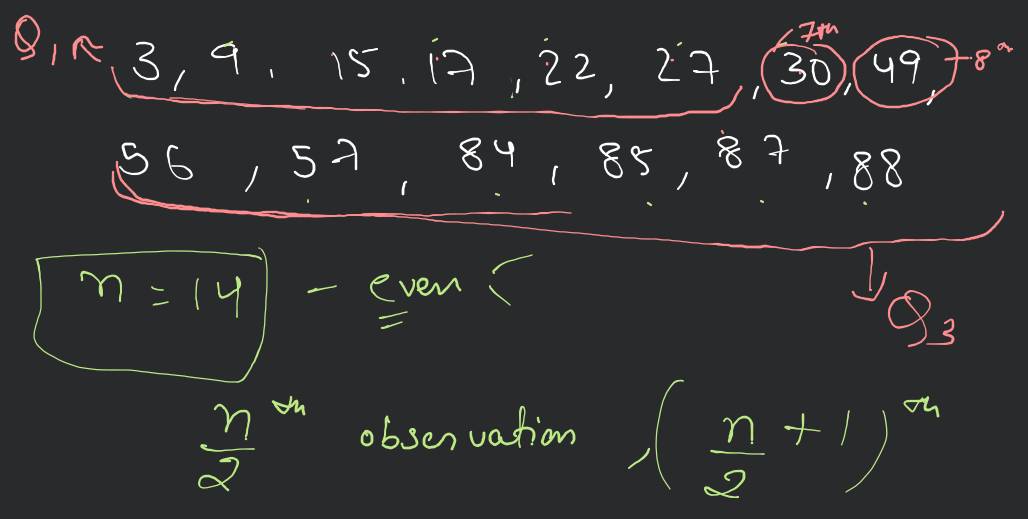 Q₁ ← 3, 9, 15, 17, 22, 27, 30, 49, 7th 8th
56, 57, 84, 85, 87, 88
n = 14 - even Q₃
n/2 th observation, (n/2 + 1)th